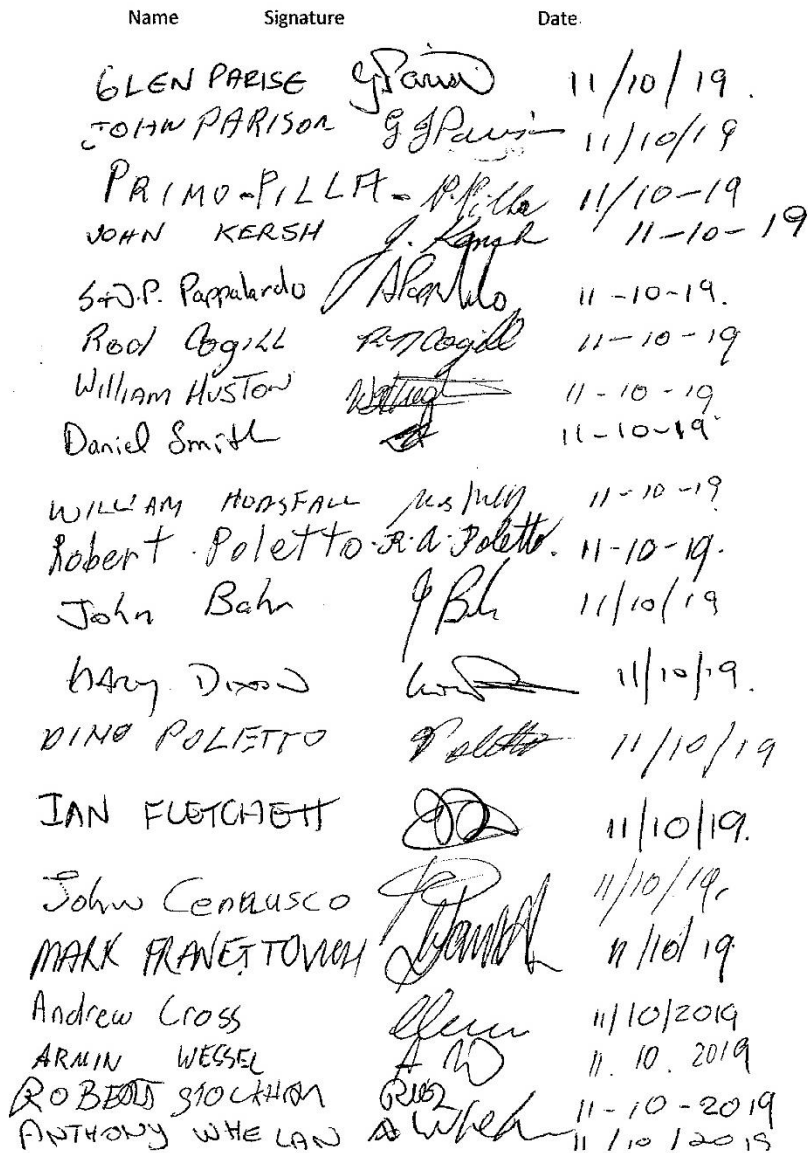 Name Signature Date
GLEN PARISE G Parise 11/10/19.
JOHN PARISON G J Paris 11/10/19
PRIMO-PILLA- P. Pilla 11/10-19
JOHN KERSH J. Kersh 11-10-19
S+J.P. Pappalardo 11-10-19.
Rod Cogill R N Cogill 11-10-19
William HUSTON 11-10-19
Daniel Smith 11-10-19
WILLIAM HORSFALL 11-10-19
Robert Poletto R.A. Poletto. 11-10-19.
John Bahn J Bah 11/10/19
GARY DIXON 11/10/19.
DINO POLETTO Poletto 11/10/19
IAN FLETCHETT 11/10/19.
John Cenrusco 11/10/19.
MARK FRANETTOVICH 11/10/19
Andrew Cross 11/10/2019
ARMIN WESSEL A W 11.10.2019
ROBERT STOCKHAM 11-10-2019
ANTHONY WHELAN A Whelan 11/10/2019